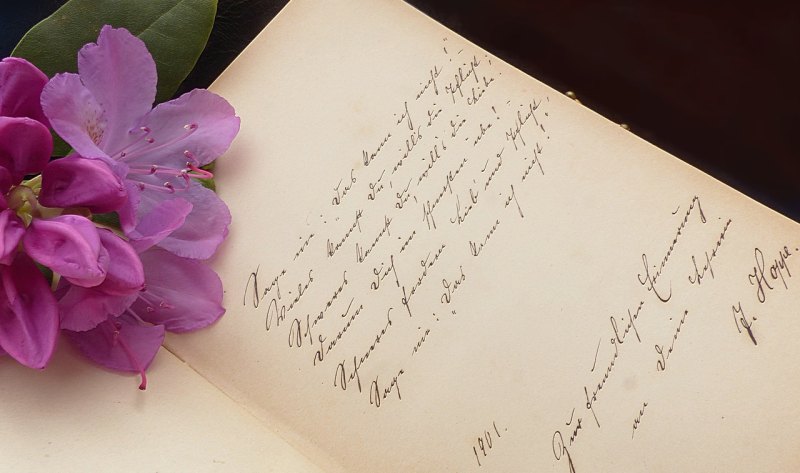 Sage nie: „Das kann ich nicht“! –
Vieles kannst Du, will's die Pflicht;
Schweres kannst Du, will's die Liebe.
Darum Dich im Schwersten übe! –
Schweres fordern Lieb und Pflicht,
Sage nie: „Das kann ich nicht!“
1901.
Zur freundlichen Erinnerung
an Deine Lehrerin
J. Hoppe.